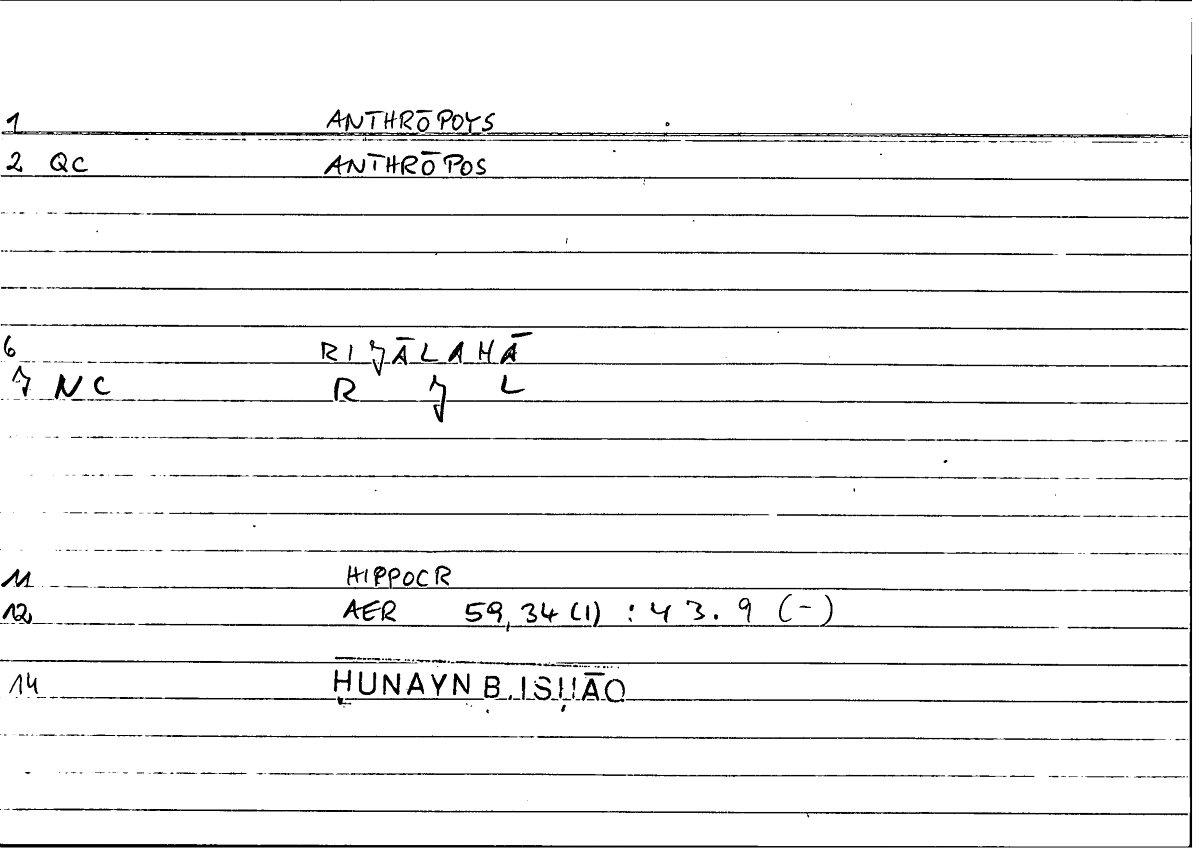 1 ANTHRŌPOYS
2 QC ANTHRŌPOS
6 RIJĀLAHĀ
7 NC R J L
11 HIPPOCR
12 AER 59,34 (1) : 43.9 (-)
14 ḤUNAYN B. ISḤĀQ